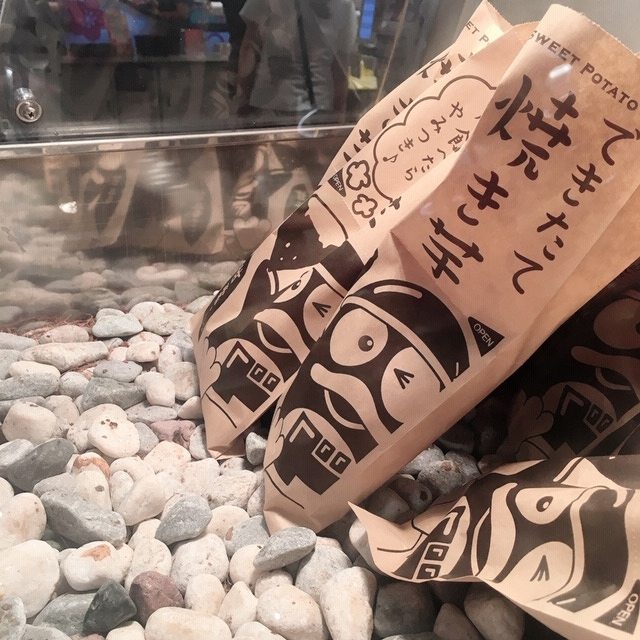 SWEET POTATO
できたて
焼き芋
食べたら
やみつき♪
OPEN
SWEET P
OPEN